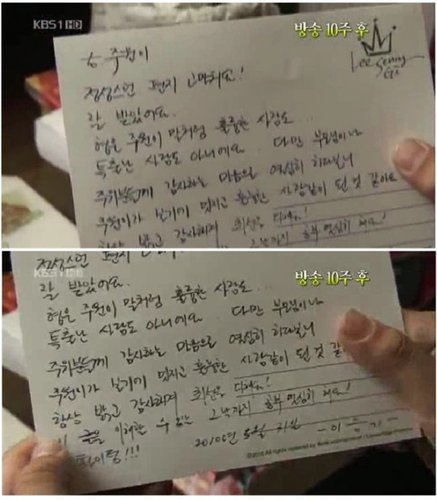 KBS1 HD
방송 10주 후
Lee Seung Gi
to 주원이
정성스런 편지 고마워요!
잘 받았어요.
형은 주원이 말처럼 훌륭한 사람도...
특출난 사람도 아니에요. 다만 부모님이나
주위분들께 감사하는 마음으로 열심히 하다보니
주원이가 보기에 멋지고 훌륭한 사람같이 된 것 같아요
항상 밝고 감사하게 최선을 다해요!
공부 열심히 해요!
정성스런 편지
KBS1 HD
방송 10주 후
잘 받았어요.
형은 주원이 말처럼 훌륭한 사람도...
특출난 사람도 아니에요. 다만 부모님이나
주위분들께 감사하는 마음으로 열심히 하다보니
주원이가 보기에 멋지고 훌륭한 사람같이 된 것 같
항상 밝고 감사하게 최선을 다해요!
이 글을 이해할 수 있는 그날까지 공부 열심히 해요!
화이팅!!! 2010년 5월 31일 -이승기-